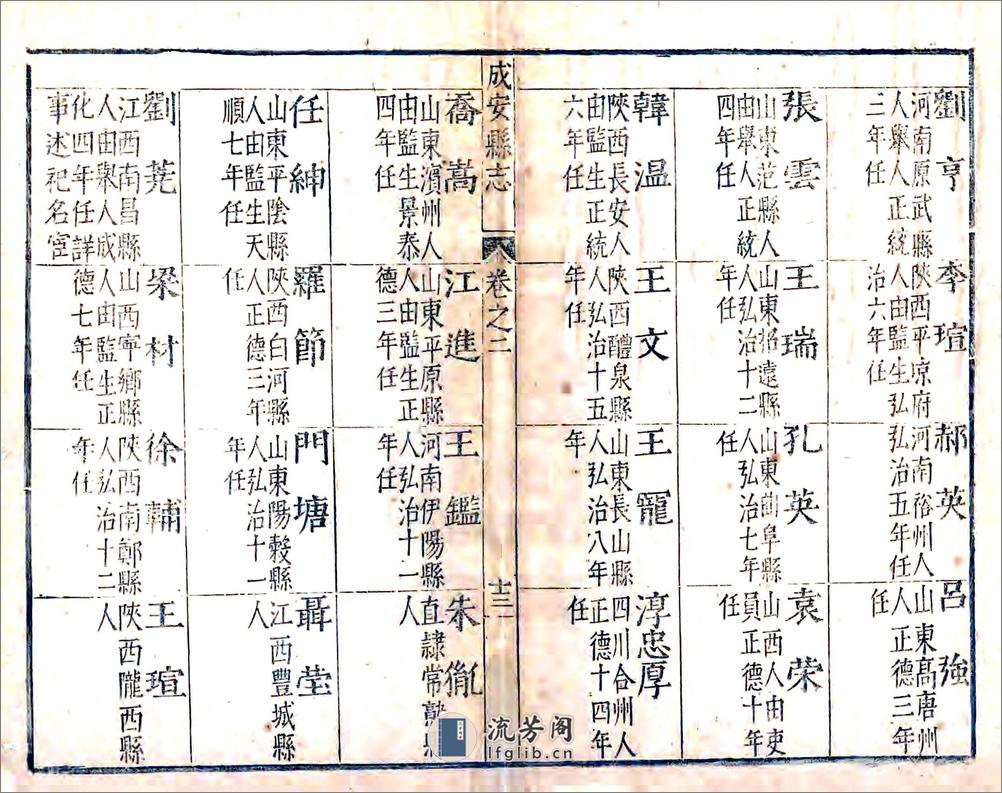 劉亨
河南原武縣
人舉人正統
三年任
李瑄
陝西平凉府
人由監生弘
治六年任
郝英
河南裕州人
弘治五年任
呂強
山東高唐州
人正德三年
任
張雲
山東范縣人
由舉人正統
四年任
王瑞
山東招遠縣
人弘治十二
年任
孔英
山東曲阜縣
人弘治七年
任
袁荣
山西人由吏
員正德十年
任
韓温
陝西長安人
由監生正統
六年任
王文
陝西醴泉縣
人弘治十五
年任
王寵
山東長山縣
人弘治八年
年
淳忠厚
四川合州人
正德十四年
任
成安縣志
卷之二
十三
喬嵩
山東濱州人
由監生景泰
四年任
江進
山東平原縣
人由監生正
德三年任
王鑑
河南伊陽縣
人弘治十一
年任
朱
直隷常熟縣
人
任紳
山東平陰縣
人由監生天
順七年任
羅節
陝西白河縣
人正德三年
任
門塘
山東陽穀縣
人弘治十一
年任
聶瑩
江西豐城縣
人
劉
江西南昌縣
人由舉人成
化四年任詳
事述祀名宦
梁材
山西寧鄉縣
人由監生正
德七年任
徐輔
陝西南鄭縣
人弘治十二
年任
王瑄
陝西隴西縣
人
流芳阁
lfglib.cn